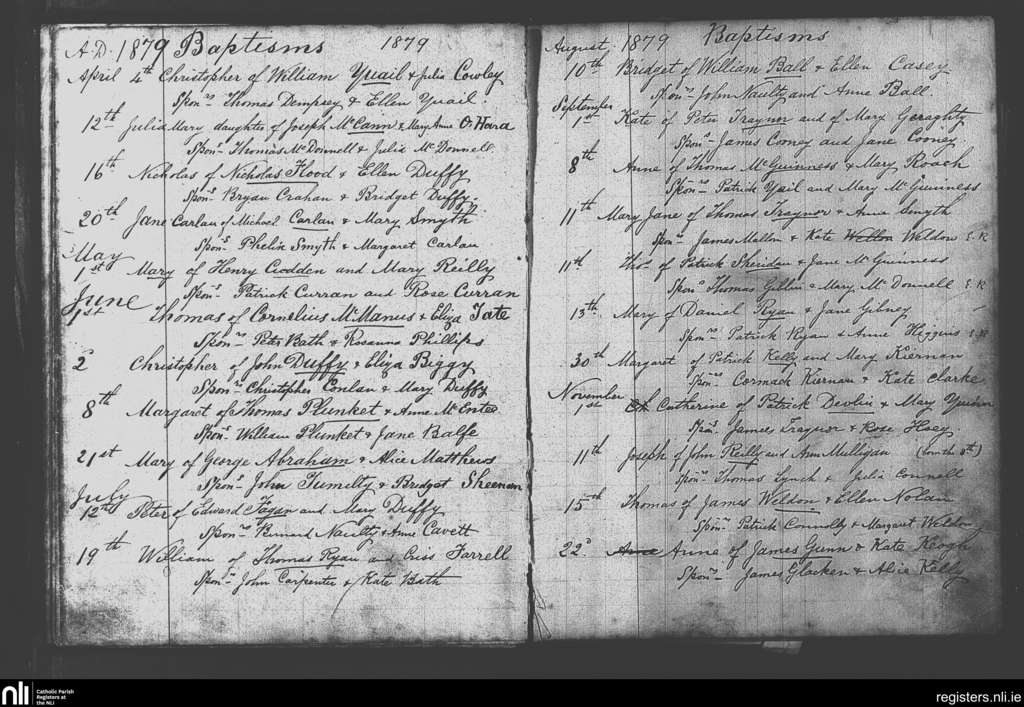 A.D. 1879 Baptisms 1879
April 4th Christopher of William Quail & Julia Cowley
Sponrs Thomas Dempsey & Ellen Quail.
12th Julia Mary daughter of Joseph McCann & Mary Anne O'Hara
Sponrs Thomas McDonnell & Julia McDonnell.
16th Nicholas of Nicholas Flood & Ellen Duffy
Sponrs Bryan Crahan & Bridget Duffy.
20th Jane Carlan of Michael Carlan & Mary Smyth
Sponrs Phelix Smyth & Margaret Carlan
May
1st Mary of Henry Crodden and Mary Reilly
Sponrs Patrick Curran and Rose Curran
June
1st Thomas of Cornelius McManus & Eliza Tate
Sponrs Peter Bath & Rosanna Phillips
2d Christopher of John Duffy & Eliza Biggy
Sponrs Christopher Conlan & Mary Duffy
8th Margaret of Thomas Plunket & Anne McEntee
Sponrs William Plunket & Jane Balfe
21st Mary of George Abraham & Alice Matthews
Sponrs John Tumelty & Bridget Sheenan
July
12th Peter of Edward Fagan and Mary Duffy
Sponrs Bernard Naulty & Anne Cavett
19th William of Thomas Ryan and Criss Farrell
Sponrs John Carpenter & Kate Bath
August 1879 Baptisms
10th Bridget of William Ball & Ellen Casey
Sponrs John Naulty and Anne Ball.
September
1st Kate of Peter Traynor and of Mary Geraghty
Sponrs James Comey and Jane Cooney
8th Anne of Thomas McGuinness & Mary Roach
Sponrs Patrick Quail and Mary McGuinness
11th Mary Jane of Thomas Traynor & Anne Smyth
Sponrs James Mallon & Kate Weldon E. R
11th Thos of Patrick Sheridan & Jane McGuinness
Sponrs Thomas Gillin & Mary McDonnell E. R
13th Mary of Daniel Ryan & Jane Gibney
Sponrs Patrick Ryan & Anne Higgins E. R
30th Margaret of Patrick Kelly and Mary Kiernan
Sponrs Cormack Kiernan & Kate Clarke
November
1st Catherine of Patrick Devlin & Mary Quinn
Sponrs James Traynor & Rose Hoey
11th Joseph of John Reilly and Ann Mulligan (born the 8th)
Sponrs Thomas Lynch & Julia Connell
15th Thomas of James Weldon & Ellen Nolan
Sponrs Patrick Connolly & Margaret Weldon
22d Anne of James Gunn & Kate Keogh
Sponrs James Glacken & Alice Kelly
nli Catholic Parish
Registers at
the NLI
registers.nli.ie